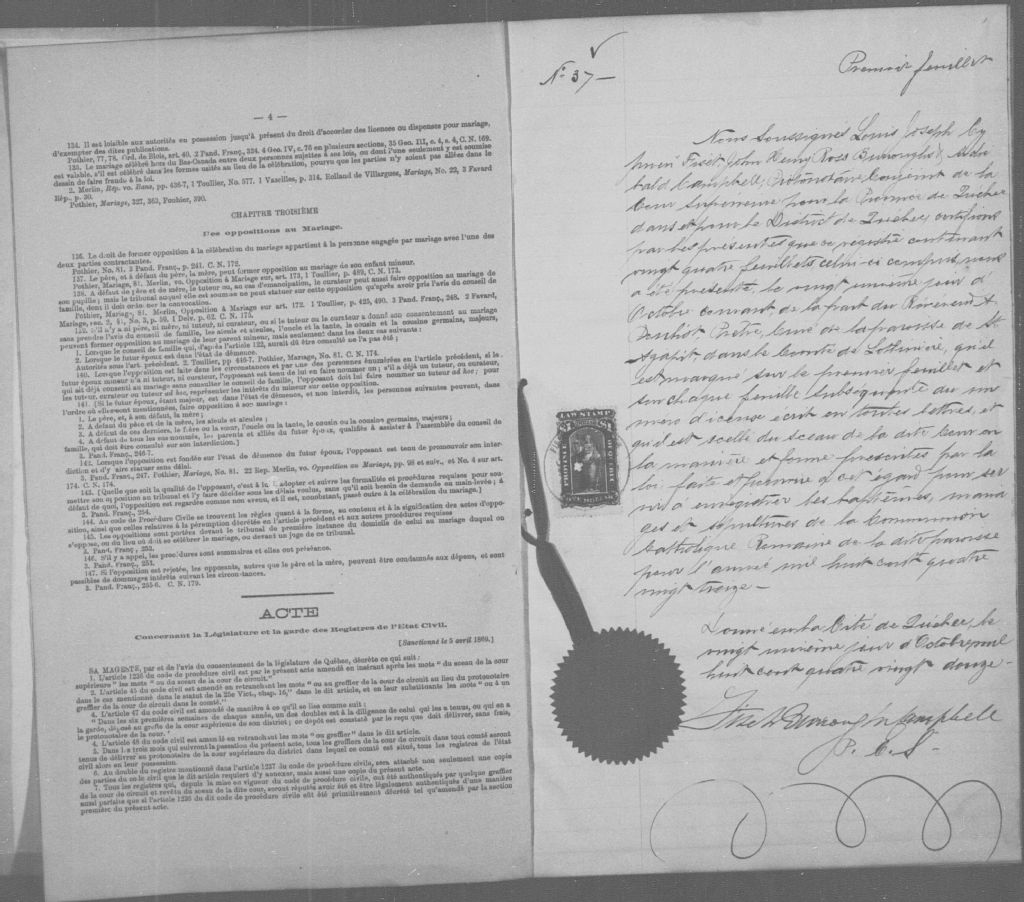 — 4 —
134. Il est loisible aux autorités en possession jusqu'à présent du droit d'accorder des licences ou dispenses pour mariage,
d'exempter des dites publications.
Pothier, 77, 78. Ord. de Blois, art. 40, 2 Pand. Franç., 334, 4 Geo. IV, c. 75 en plusieurs sections, 35 Geo. III, c. 4, s. 4, C. N. 169.
135. Le mariage célébré hors du Bas-Canada entre deux personnes sujettes à ses lois, ou dont l'une seulement y est soumise
est valable, s'il est célébré dans les formes usités au lieu de la célébration, pourvu que les parties n'y soient pas allées dans le
dessin de faire fraude à la loi.
2. Merlin, Rép. vo. Bans, pp. 436-7, 1 Toullier, No. 577. 1 Vazilles, p. 314. Rolland de Villargues, Mariage, No. 22, 3 Favard
Rép., p. 30.
Pothier, Mariage, 327, 363, Pothier, 390.
CHAPITRE TROISIÈME
Des oppositions au Mariage.
136. Le droit de former opposition à la célébration du mariage appartient à la personne engagée par mariage avec l'une des
deux parties contractantes.
Pothier, No. 81. 3 Pand. Franç., p. 241. C. N. 172.
137. Le père, et à défaut du père, la mère, peut former opposition au mariage de son enfant mineur.
Pothier, Mariage, 81. Merlin, vo. Opposition à Mariage sur, art. 173, 1 Toullier, p. 489, C. N. 173.
138. A défaut de père et de mère, le tuteur ou, au cas d'émancipation, le curateur peut aussi faire opposition au mariage de
son pupille; mais le tribunal auquel elle est soumise ne peut statuer sur cette opposition qu'après avoir pris l'avis du conseil de
famille, dont il doit ordonner la convocation.
Pothier, Mariage, 81. Merlin, Opposition à Mariage sur art. 172. 1 Toullier, p. 425, 490. 3 Pand. Franç., 248. 2 Favard,
Mariage, sec. 2, §1, No. 3, p. 59. 1 Delv. p. 62. C. N. 175.
139. S'il n'y a ni père, ni mère, ni tuteur, ni curateur, ou si le tuteur ou le curateur a donné son consentement au mariage
sans prendre l'avis du conseil de famille, les aïeuls et aïeules, l'oncle et la tante, le cousin et la cousine germains, majeurs,
peuvent former opposition au mariage de leur parent mineur, mais seulement dans les deux cas suivants:
1. Lorsque le conseil de famille qui, d'après l'article 122, aurait dû être consulté ne l'a pas été;
2. Lorsque le futur époux est dans l'état de démence.
Autorités sous l'art. précédent. 2 Toullier, pp. 446-7. Pothier, Mariage, No. 81. C. N. 174.
140. Lorsque l'opposition est faite dans les circonstances et par une des personnes énumérées en l'article précédent, si le
futur époux mineur n'a ni tuteur, ni curateur, l'opposant est tenu de lui en faire nommer un; s'il a déjà un tuteur, ou curateur,
qui ait déjà consenti au mariage sans consulter le conseil de famille, l'opposant doit lui faire nommer un tuteur ad hoc; pour
les tuteur, curateur ou tuteur ad hoc, représenter les intérêts du mineur sur cette opposition.
141. [Si le futur époux, étant majeur, est dans l'état de démence, et non interdit, les personnes suivantes peuvent, dans
l'ordre où elles sont mentionnées, faire opposition à son mariage:
1. Le père, et, à son défaut, la mère;
2. A défaut du père et de la mère, les aïeuls et aïeules;
3. A défaut de ces derniers, le frère ou la sœur, l'oncle ou la tante, le cousin ou la cousine germains, majeurs;
4. A défaut de tous les sus-nommés, les parents et alliés du futur époux, qualifiés à assister à l'assemblée du conseil de
famille, qui doit être consulté sur son interdiction.]
3. Pand. Franç., 246-7.
142. Lorsque l'opposition est fondée sur l'état de démence du futur époux, l'opposant est tenu de promouvoir son inter-
diction et d'y faire statuer sans délai.
3. Pand. Franç., 247. Pothier, Mariage, No. 81. 22 Rep. Merlin, vo. Opposition au Mariage, pp. 98 et suiv., et No. 4 sur art.
174. C. N. 174.
143. [Quelle que soit la qualité de l'opposant, c'est à lui d'adopter et suivre les formalités et procédures requises pour sou-
mettre son opposition au tribunal et l'y faire décider sous les délais voulus, sans qu'il soit besoin de demande en main-levée; à
défaut de quoi, l'opposition est regardée comme non avenu, et il est, nonobstant, passé outre à la célébration du mariage.]
3. Pand. Franç., 254.
144. Au code de Procédure Civile se trouvent les règles quant à la forme, au contenu et à la signification des actes d'oppo-
sition, ainsi que celles relatives à la péremption décrétée en l'article précédent et aux autres procédures requises
145. Les oppositions sont portées devant le tribunal de première instance du domicile de celui au mariage duquel on
s'oppose, ou du lieu où doit se célébrer le mariage, ou devant un juge de ce tribunal.
3. Pand. Franç., 253.
146. S'il y a appel, les procédures sont sommaires et elles ont préséance.
3. Pand. Franç., 253.
147. Si l'opposition est rejetée, les opposants, autres que le père et la mère, peuvent être condamnés aux dépens, et sont
passibles de dommages intérêts suivant les circonstances.
3. Pand. Franç., 255-6. C. N. 179.
ACTE
Concernant la Législature et la garde des Registres de l'Etat Civil.
[Sanctionné le 5 avril 1869.]
SA MAGESTÉ, par et de l'avis du consentement de la législature de Québec, décrète ce qui suit:
1. L'article 1236 du code de procédure civil est par le présent acte amendé en insérant après les mots "du sceau de la cour
supérieure" les mots "ou du sceau de la cour de circuit."
2. L'article 45 du code civil est amendé en retranchant les mots "ou au greffier de la cour de circuit au lieu du protonotaire
dans le cas mentionné dans le statut de la 25e Vict., chap. 16," dans le dit article, et en leur substituants les mots "ou à un
greffier de la cour de circuit dans le comté."
4. L'article 47 du code civil est amendé de manière à ce qu'il se lise comme suit:
"Dans les six premières semaines de chaque année, un des doubles est à la diligence de celui qui les a tenus, ou qui en a
la garde, déposé au greffe de la cour supérieure de son district; ce dépôt est constaté par le reçu que doit délivrer, sans frais,
le protonotaire de la cour."
4. L'article 48 du code civil est amendé en retranchant les mots "ou greffier" dans le dit article.
5. Dans les trois mois qui suivront la passation du présent acte, tous les greffiers de la cour de circuit dans tout comté seront
tenus de délivrer au protonotaire de la cour supérieure du district dans lequel ce comté est situé, tous les registres de l'état
civil alors en leur possession.
6. Au double du registre mentionné dans l'article 1237 du code de procédure civile, sera attaché non seulement une copie
des parties du code civil que le dit article requiert d'y annexer, mais aussi une copie du présent acte.
7. Tous les registres qui, depuis la mise en vigueur du code de procédure civile, ont été authentiqués par quelque greffier
de la cour de circuit et revêtu du sceau de la dite cour, seront réputés avoir été et être légalement authentiqués d'une manière
aussi parfaite que si l'article 1236 du dit code de procédure civile eût été primitivement décrété tel qu'amendé par la section
première du présent acte.
No 37 —
Premier feuillet
Nous Soussignés Louis Joseph Cy
prien Fiset, John Henry Ross Burroughs & Archi
bald Campbell, Protonotaire Conjoint de la
Cour Superieure pour la Province de Quebec
dans et pour le District de Quebec, certifions
par les presentes que ce registre contenant
vingt quatre feuillets celui-ci compris nous
a été presenté, le vingt unieme jour d'
Octobre courant de la part du Reverend A
Prêtre, Curé de la paroisse de St
Agapit, dans le Comté de Lotbinière, qu'il
est marqué sur le premier feuillet et
sur chaque feuillet subsequent du nu
mero d'icense ecrit en toutes lettres, et
qu'il est scellé du Sceau de la dite Cour en
la manière et forme presentes par la
loi faite et pourvue a cet égard pour ser
vir a enregistrer les baptêmes, maria
ges et sepultures de la Communion
Catholique Romaine de la dite paroisse
pour l'année mil huit cent quatre
vingt treize —
Donné en la Cité de Quebec, le
vingt unieme jour d'Octobre mil
huit cent quatre vingt douze —
Fiset Burroughs Campbell
P. C. S.
LAW STAMP
$1 $1
PROVINCE OF QUEBEC